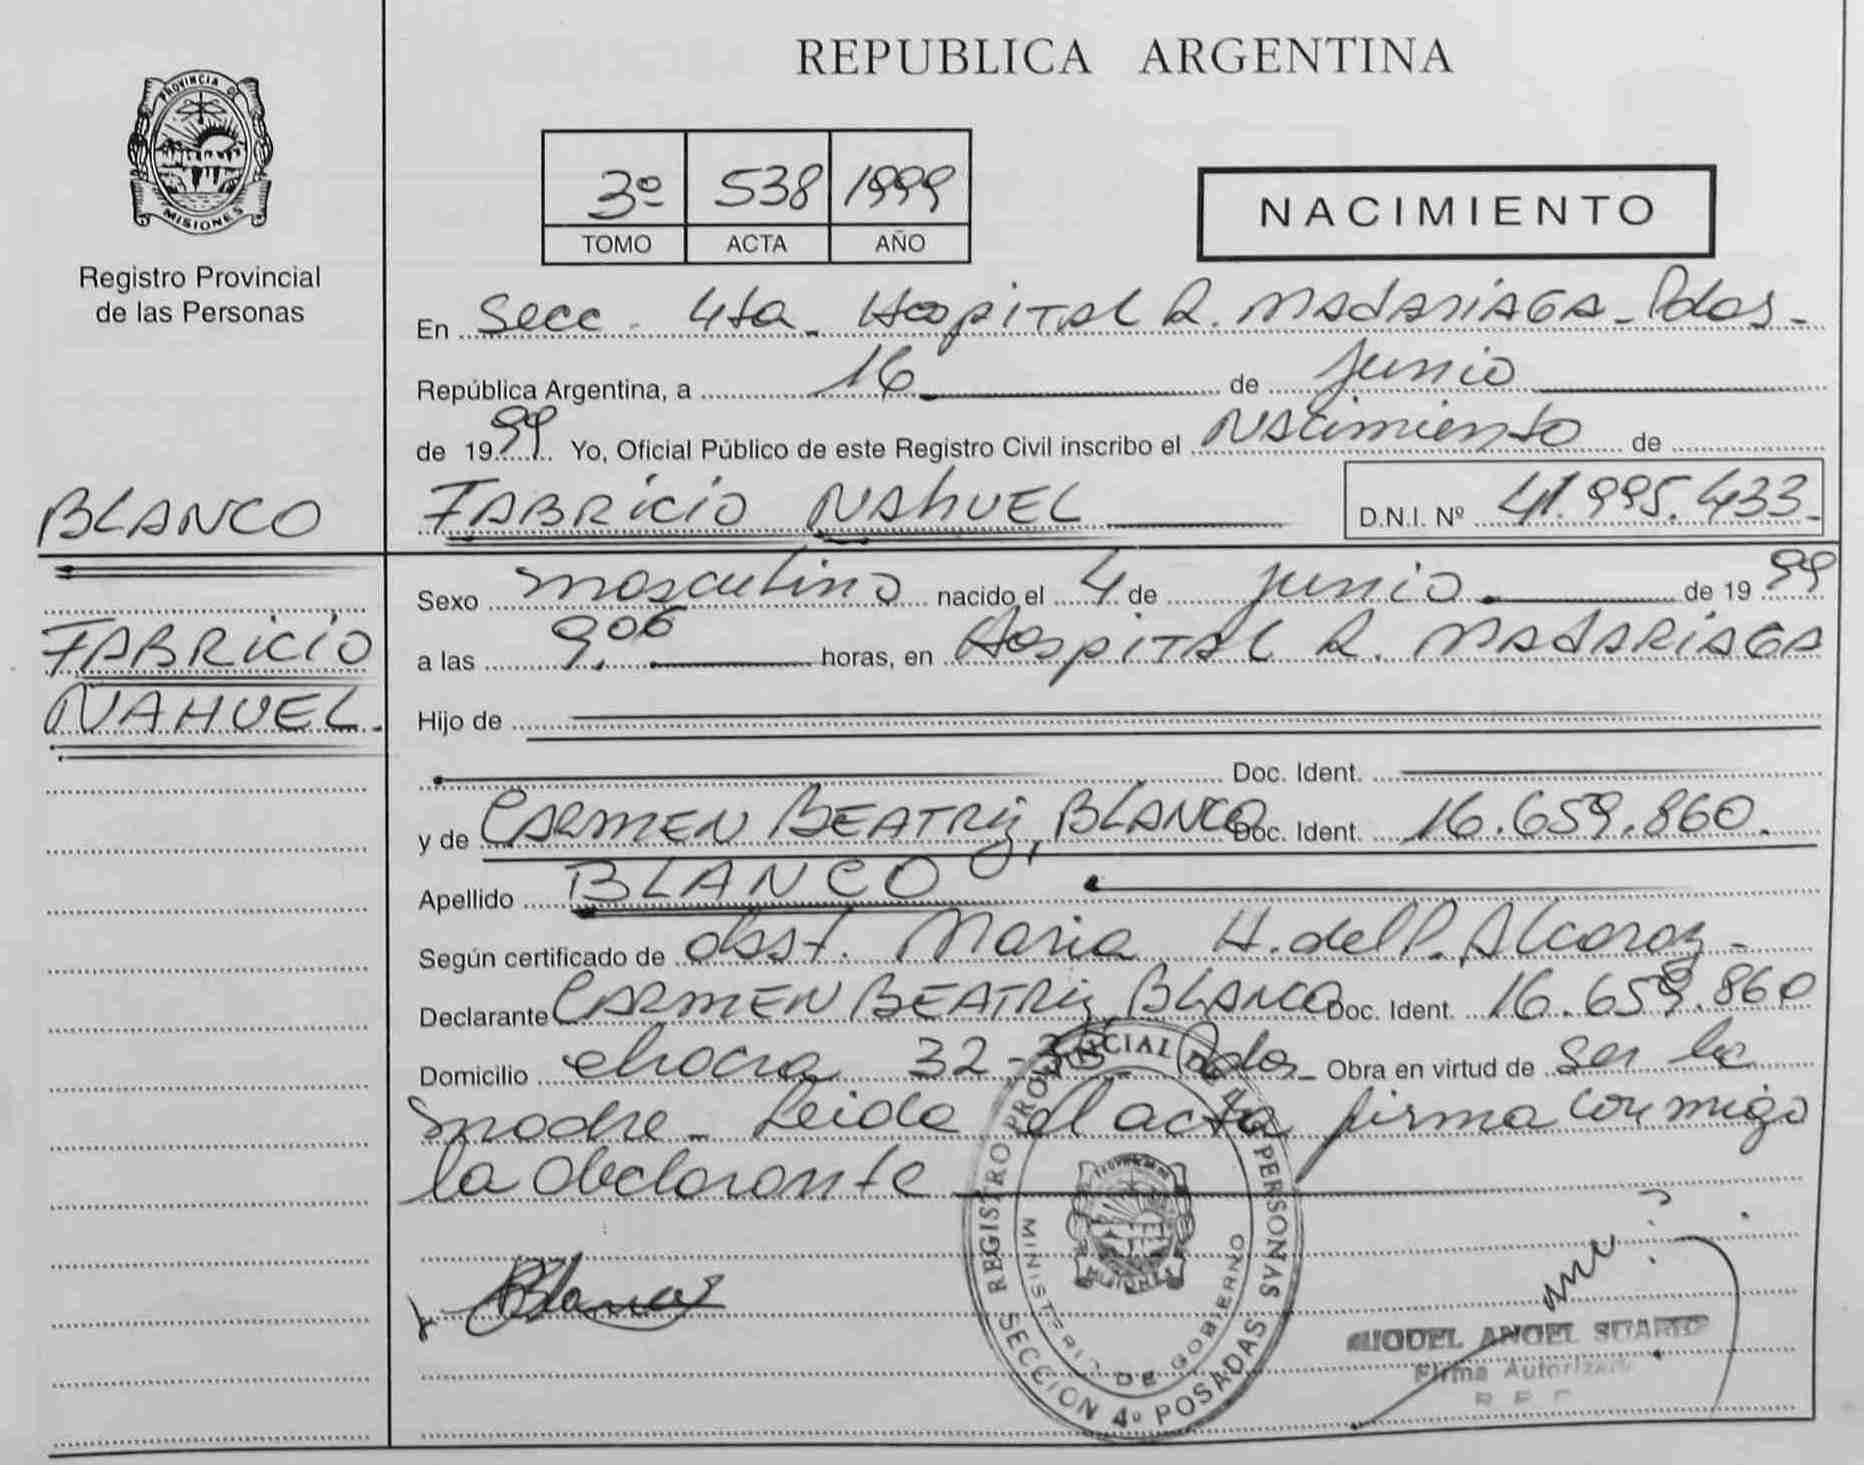 REPUBLICA ARGENTINA
PROVINCIA DE
MISIONES
Registro Provincial
de las Personas
3º 538 1999
TOMO ACTA AÑO
NACIMIENTO
En Secc. 4ta. Hospital R. MADARIAGA - Pdas -
República Argentina, a 16 de junio
de 1999 Yo, Oficial Público de este Registro Civil inscribo el Nacimiento de
FABRICIO NAHUEL D.N.I. Nº 41.995.433
BLANCO
FABRICIO
NAHUEL.
Sexo masculino nacido el 4 de junio de 1999
a las 9,06 horas, en Hospital R. MADARIAGA
Hijo de
Doc. Ident.
y de CARMEN BEATRIZ BLANCO Doc. Ident. 16.659.860.
Apellido BLANCO
Según certificado de obst. Maria H. del P. Alcaraz -
Declarante CARMEN BEATRIZ BLANCO Doc. Ident. 16.659.860
Domicilio chacra 32- Pdas - Obra en virtud de ser la
madre - Leida el acta firma conmigo
la declarante
Blanco
REGISTRO PROVINCIAL DE LAS PERSONAS
MINISTERIO DE GOBIERNO
MISIONES
SECCION 4º POSADAS
MIGUEL ANGEL SUAREZ
Firma Autorizada